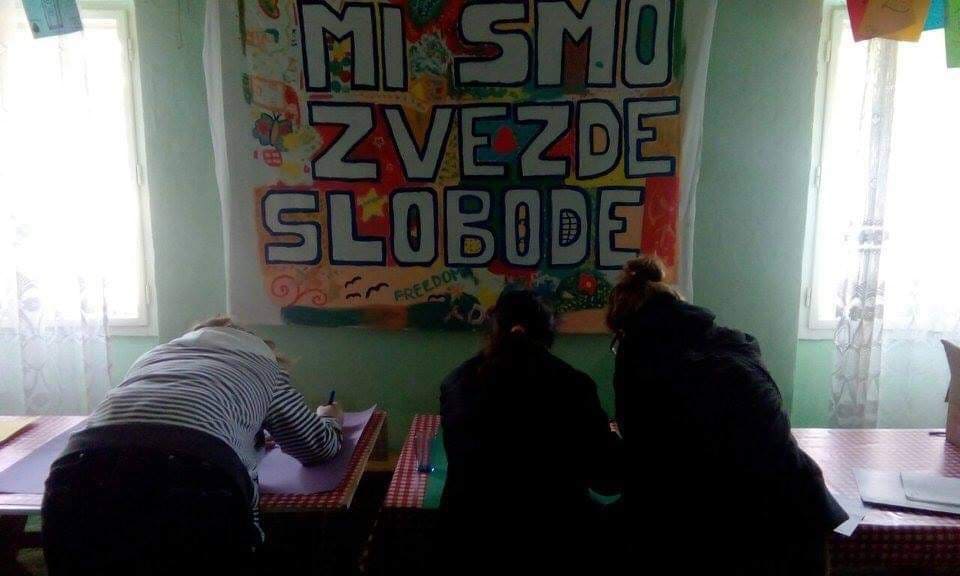 MI SMO
ZVEZDE
SLOBODE
FREEDOM